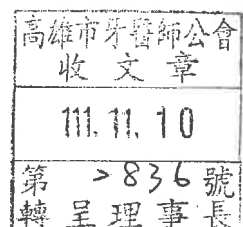 高雄市牙醫師公會
收文章
111.11.10
第 2836 號
轉呈理事長